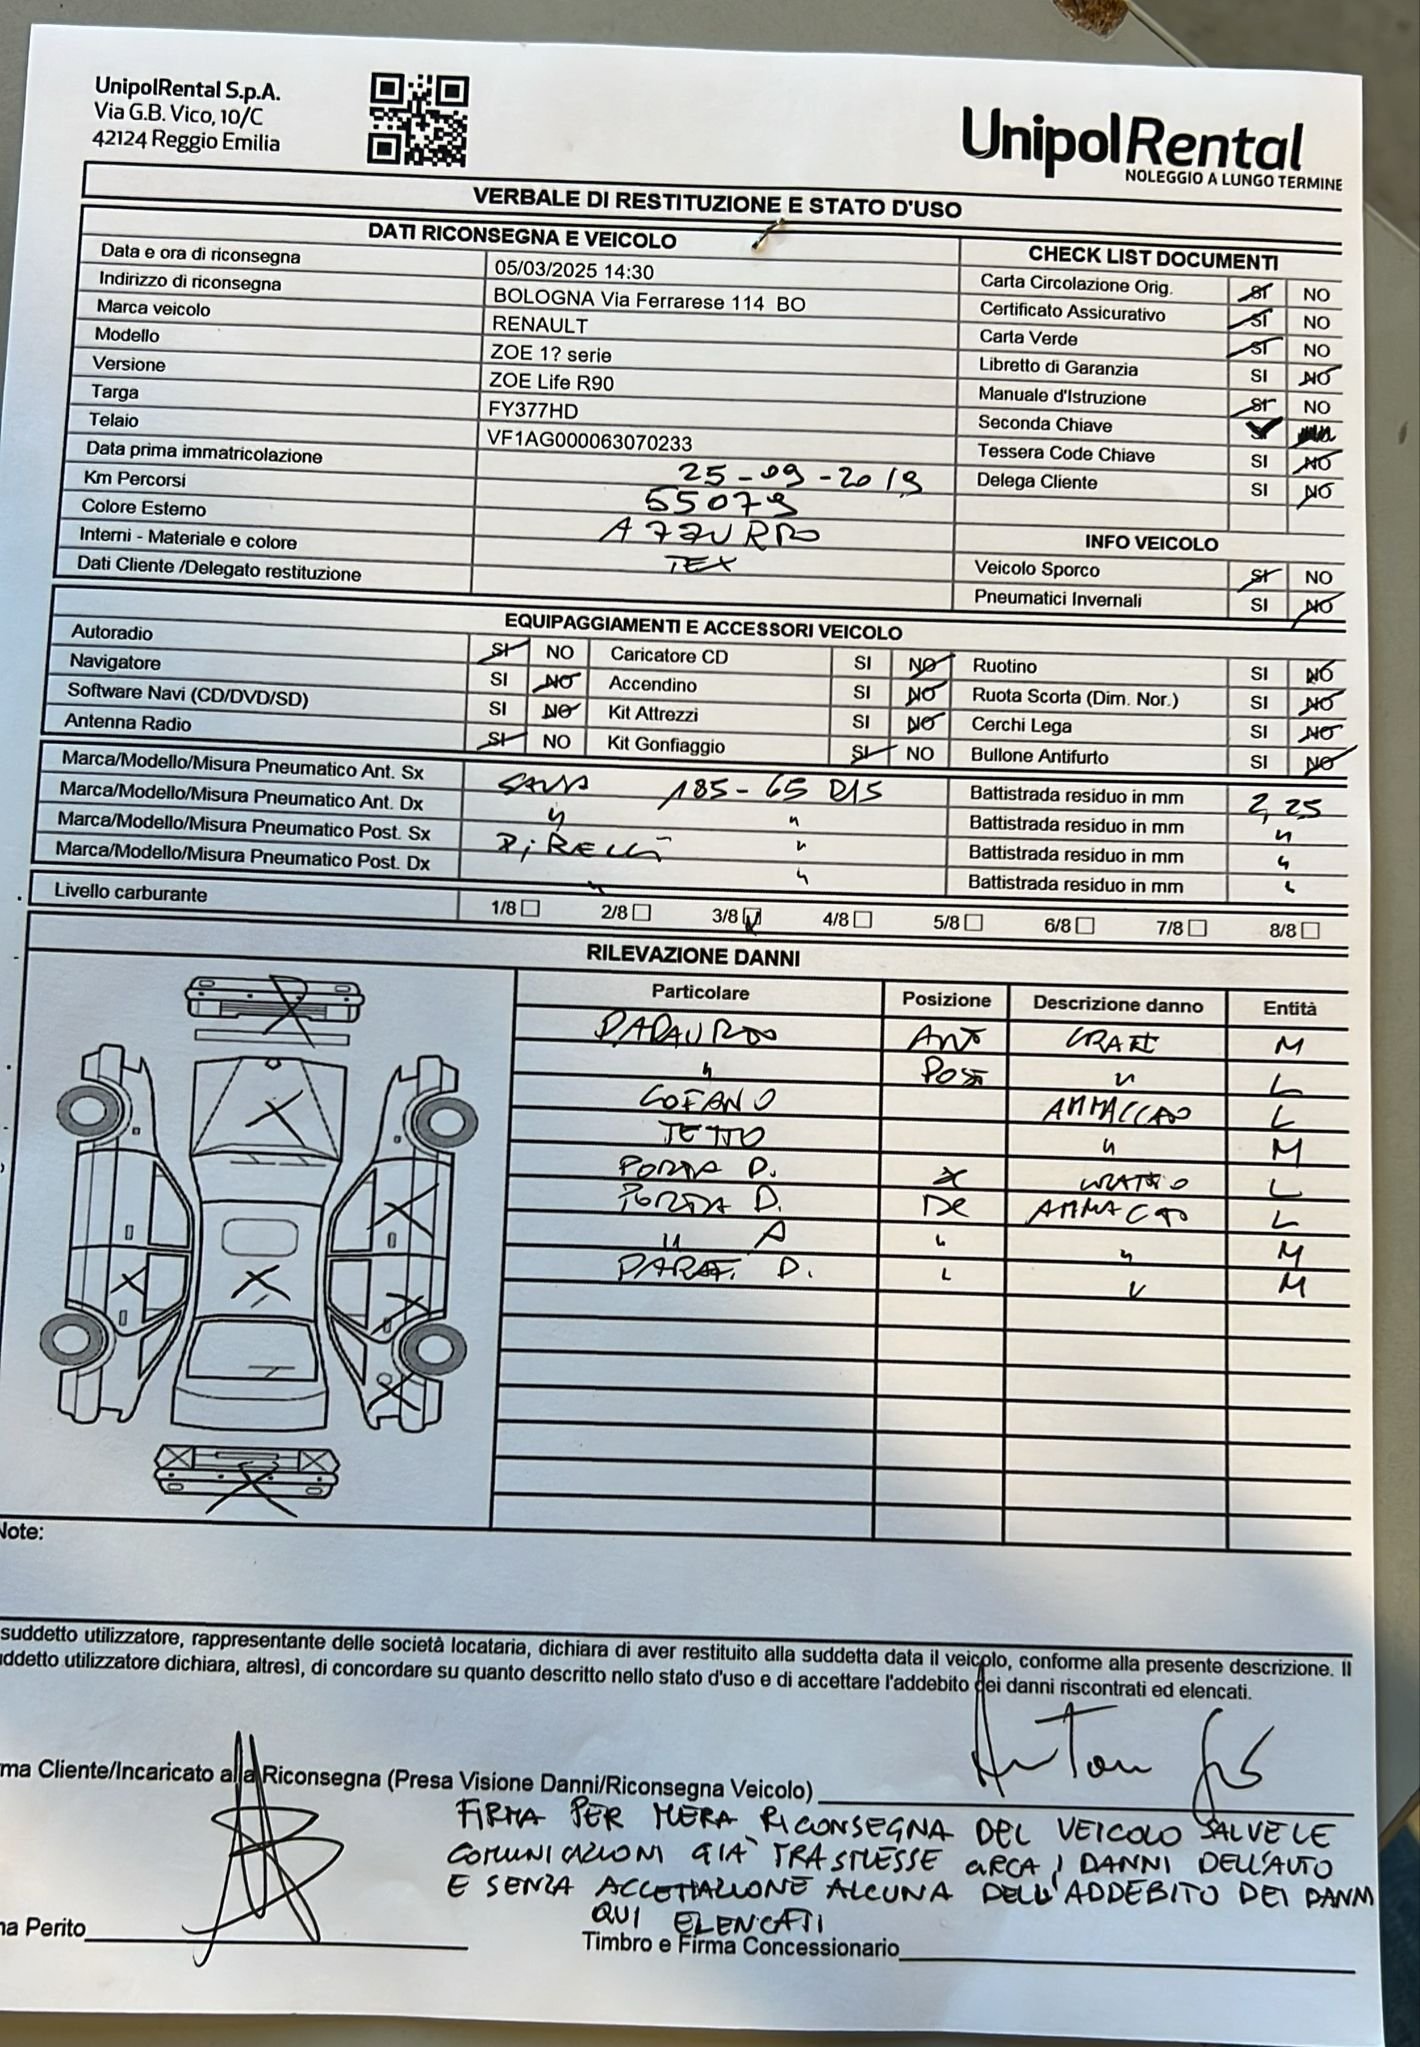 UnipolRental S.p.A.
Via G.B. Vico, 10/C
42124 Reggio Emilia
UnipolRental
NOLEGGIO A LUNGO TERMINE
VERBALE DI RESTITUZIONE E STATO D'USO
DATI RICONSEGNA E VEICOLO
Data e ora di riconsegna 05/03/2025 14:30
Indirizzo di riconsegna BOLOGNA Via Ferrarese 114 BO
Marca veicolo RENAULT
Modello ZOE 1? serie
Versione ZOE Life R90
Targa FY377HD
Telaio VF1AG000063070233
Data prima immatricolazione 25-09-2019
Km Percorsi 55079
Colore Esterno AZZURRO
Interni - Materiale e colore TEX
Dati Cliente /Delegato restituzione
CHECK LIST DOCUMENTI
Carta Circolazione Orig. SI NO
Certificato Assicurativo SI NO
Carta Verde SI NO
Libretto di Garanzia SI NO
Manuale d'Istruzione SI NO
Seconda Chiave SI
Tessera Code Chiave SI NO
Delega Cliente SI NO
INFO VEICOLO
Veicolo Sporco SI NO
Pneumatici Invernali SI NO
EQUIPAGGIAMENTI E ACCESSORI VEICOLO
Autoradio SI NO Caricatore CD SI NO Ruotino SI NO
Navigatore SI NO Accendino SI NO Ruota Scorta (Dim. Nor.) SI NO
Software Navi (CD/DVD/SD) SI NO Kit Attrezzi SI NO Cerchi Lega SI NO
Antenna Radio SI NO Kit Gonfiaggio SI NO Bullone Antifurto SI NO
Marca/Modello/Misura Pneumatico Ant. Sx 185-65 R15 Battistrada residuo in mm 2,25
Marca/Modello/Misura Pneumatico Ant. Dx " " Battistrada residuo in mm "
Marca/Modello/Misura Pneumatico Post. Sx PIRELLI " Battistrada residuo in mm "
Marca/Modello/Misura Pneumatico Post. Dx " " Battistrada residuo in mm "
Livello carburante 1/8 2/8 3/8 4/8 5/8 6/8 7/8 8/8
RILEVAZIONE DANNI
Particolare Posizione Descrizione danno Entità
PARAURTO ANT GRAFFI M
" POST " L
COFANO AMMACCATO L
TETTO " M
PORTA D. GRAFFIO L
PORTA D. DX AMMACATO L
" A " " M
PARAF. D. " " M
Note:
suddetto utilizzatore, rappresentante delle società locataria, dichiara di aver restituito alla suddetta data il veicolo, conforme alla presente descrizione. Il
ddetto utilizzatore dichiara, altresì, di concordare su quanto descritto nello stato d'uso e di accettare l'addebito dei danni riscontrati ed elencati.
ma Cliente/Incaricato alla Riconsegna (Presa Visione Danni/Riconsegna Veicolo)
FIRMA PER MERA RICONSEGNA DEL VEICOLO SALVE LE
COMUNICAZIONI GIÀ TRASMESSE CIRCA I DANNI DELL'AUTO
E SENZA ACCETTAZIONE ALCUNA DELL'ADDEBITO DEI DANNI
QUI ELENCATI
na Perito
Timbro e Firma Concessionario